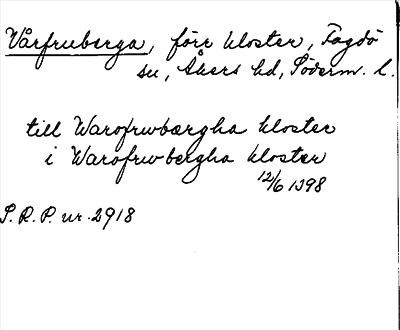 Vårfruberga, förr kloster, Fogdö
sn, Åkers hd, Söderm. l.
till Warofrwbærgha kloster
i Warofrwbergha kloster
12/6 1398
S.R.P. nr. 2918